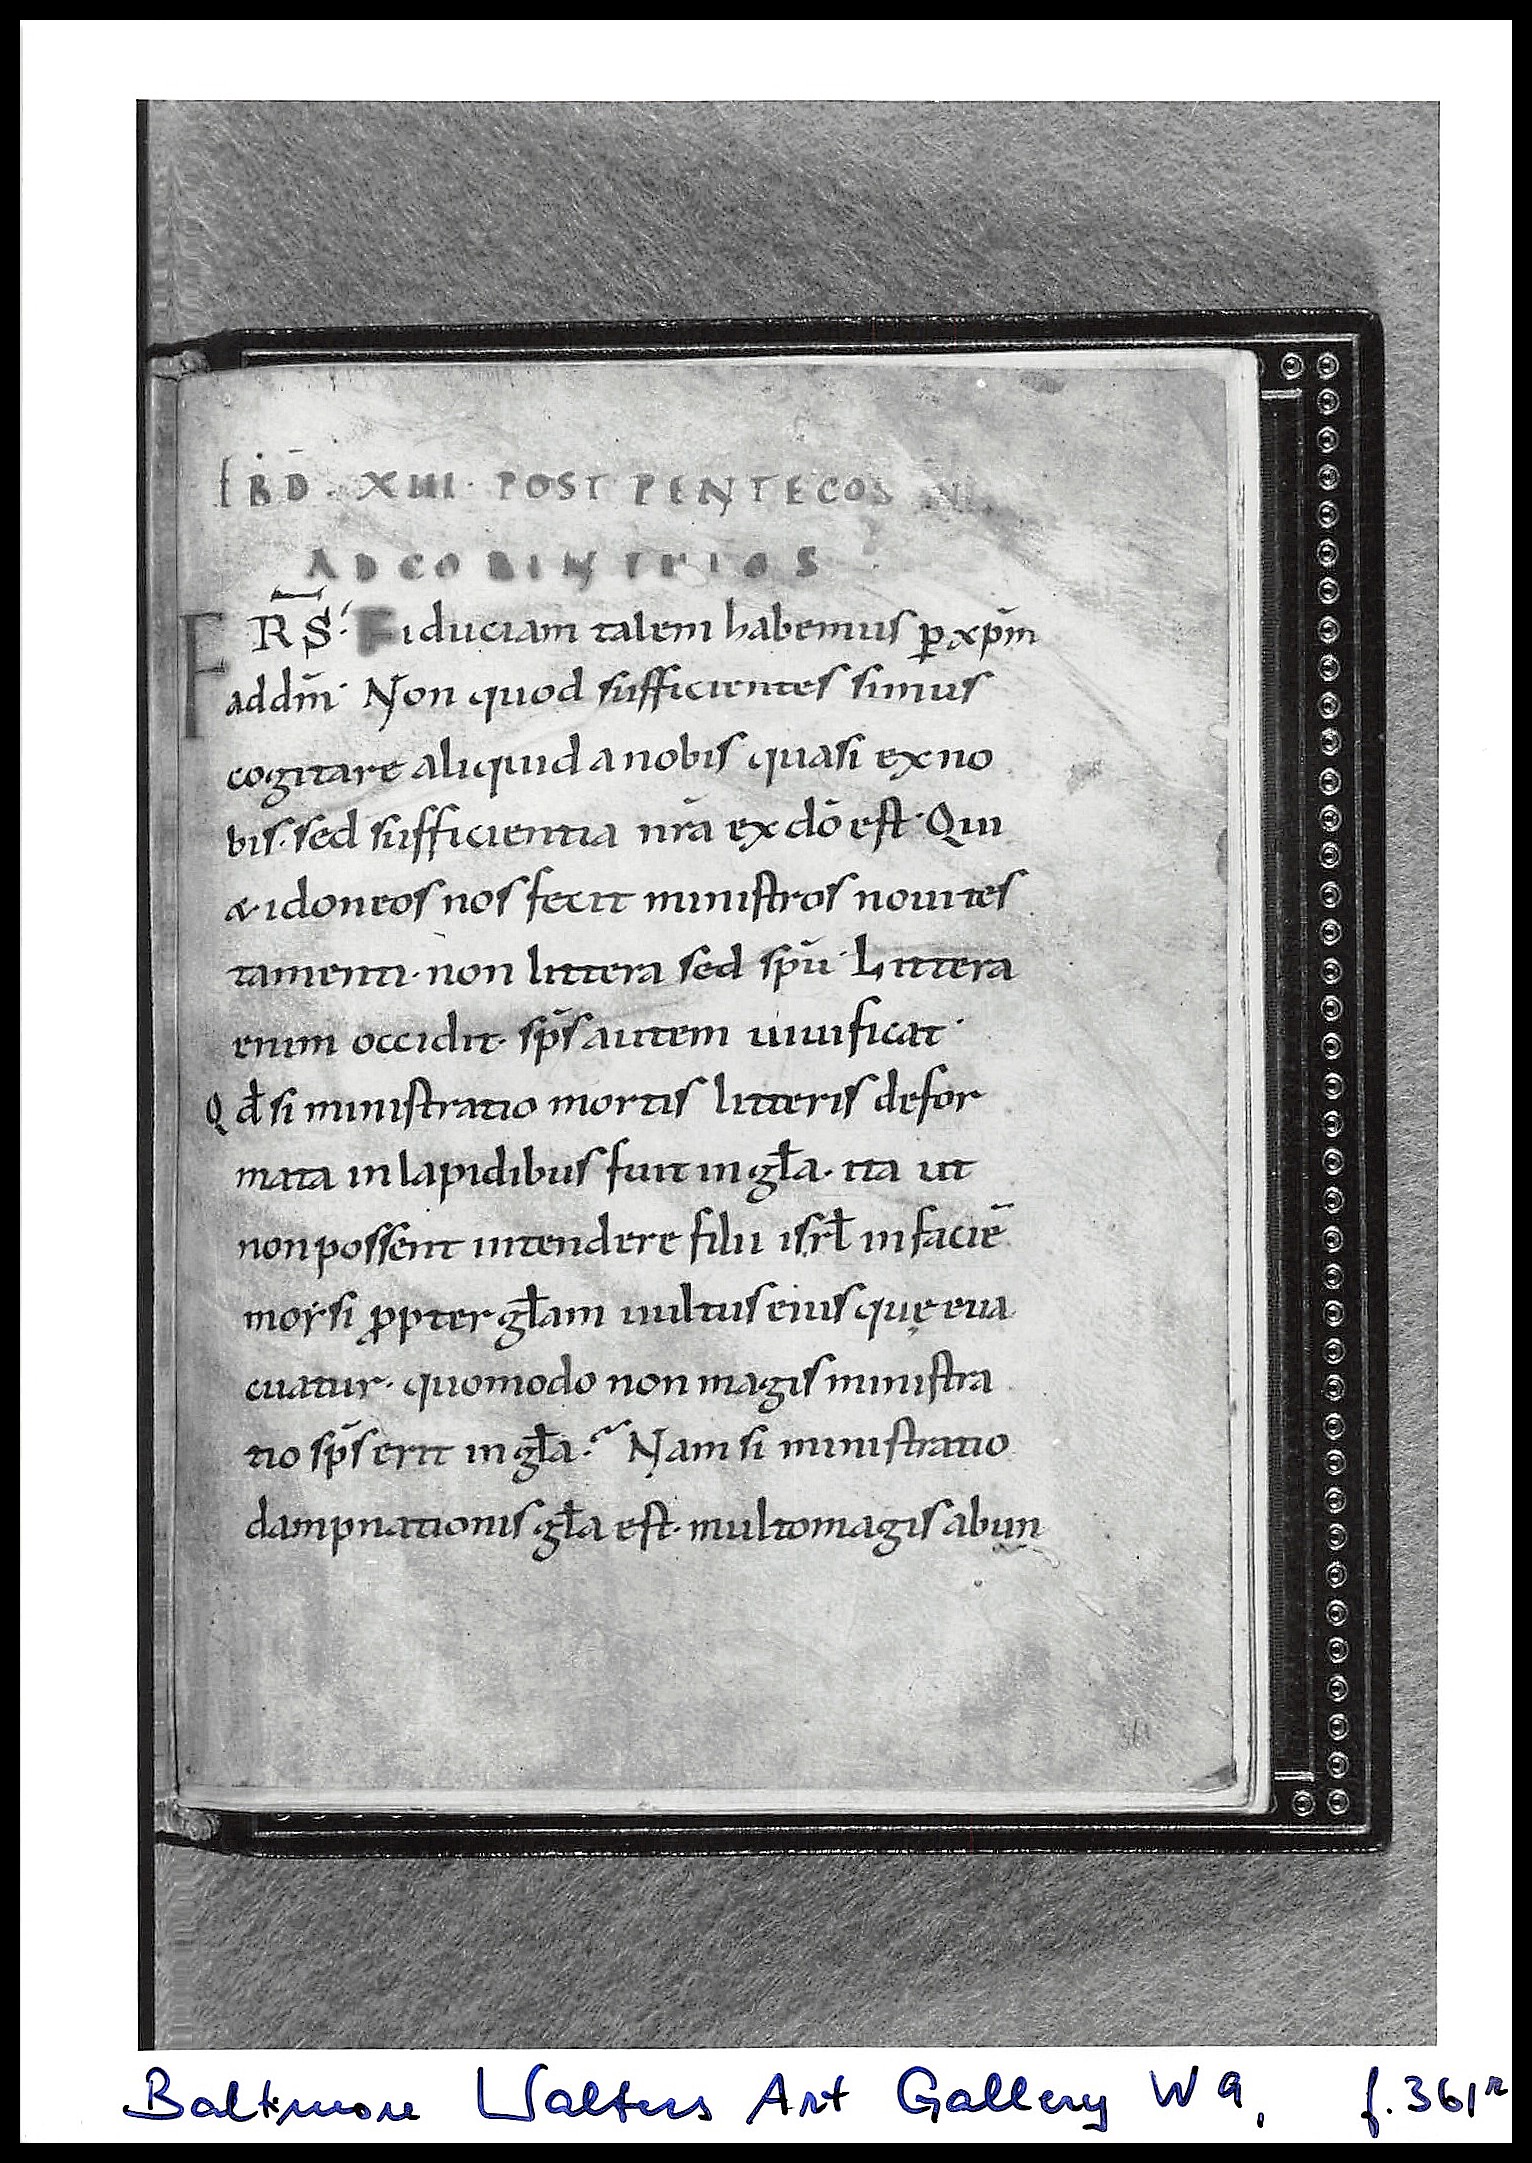 EBD · XIII · POST PENTECOS
AD CORINTHIOS
FRS̄· Fiduciam talem habemus ꝑ xp̄m
ad dm̄· Non quod sufficientes simus
cogitare aliquid a nobis quasi ex no
bis· sed sufficientia nr̄a ex dō est· Qui
& idoneos nos fecit ministros noui tes
tamenti· non littera sed spū· Littera
enim occidit· sp̄s autem uiuificat·
Qđ si ministratio mortis litteris defor
mata in lapidibus fuit in gła· ita ut
non possent intendere filii isrł in faciē
moẏsi ꝓpter głam uultus eius quę eua
cuatur· quomodo non magis ministra
tio sp̄s erit in gła· Nam si ministratio
dampnationis gła est· multo magis abun
361
Baltimore Walters Art Gallery W 9, f. 361r